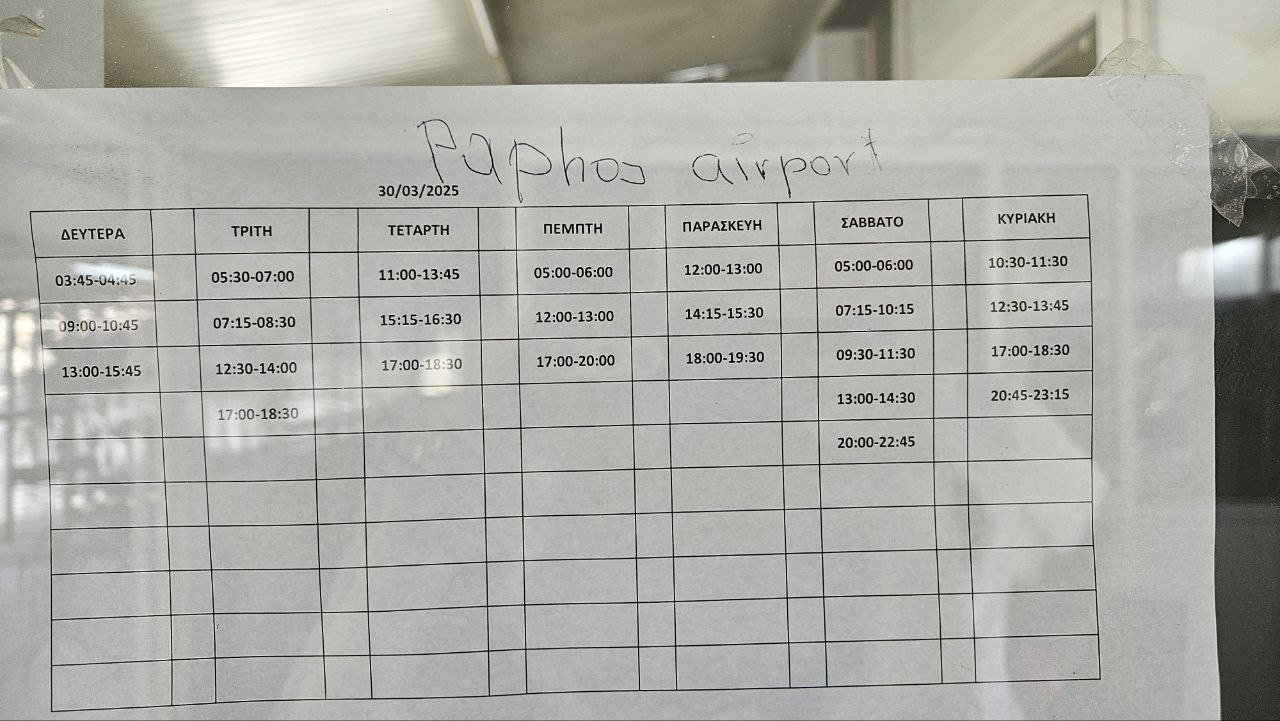 Paphos airport
30/03/2025
ΔΕΥΤΕΡΑ ΤΡΙΤΗ ΤΕΤΑΡΤΗ ΠΕΜΠΤΗ ΠΑΡΑΣΚΕΥΗ ΣΑΒΒΑΤΟ ΚΥΡΙΑΚΗ
03:45-04:45 05:30-07:00 11:00-13:45 05:00-06:00 12:00-13:00 05:00-06:00 10:30-11:30
09:00-10:45 07:15-08:30 15:15-16:30 12:00-13:00 14:15-15:30 07:15-10:15 12:30-13:45
13:00-15:45 12:30-14:00 17:00-18:30 17:00-20:00 18:00-19:30 09:30-11:30 17:00-18:30
17:00-18:30 13:00-14:30 20:45-23:15
20:00-22:45